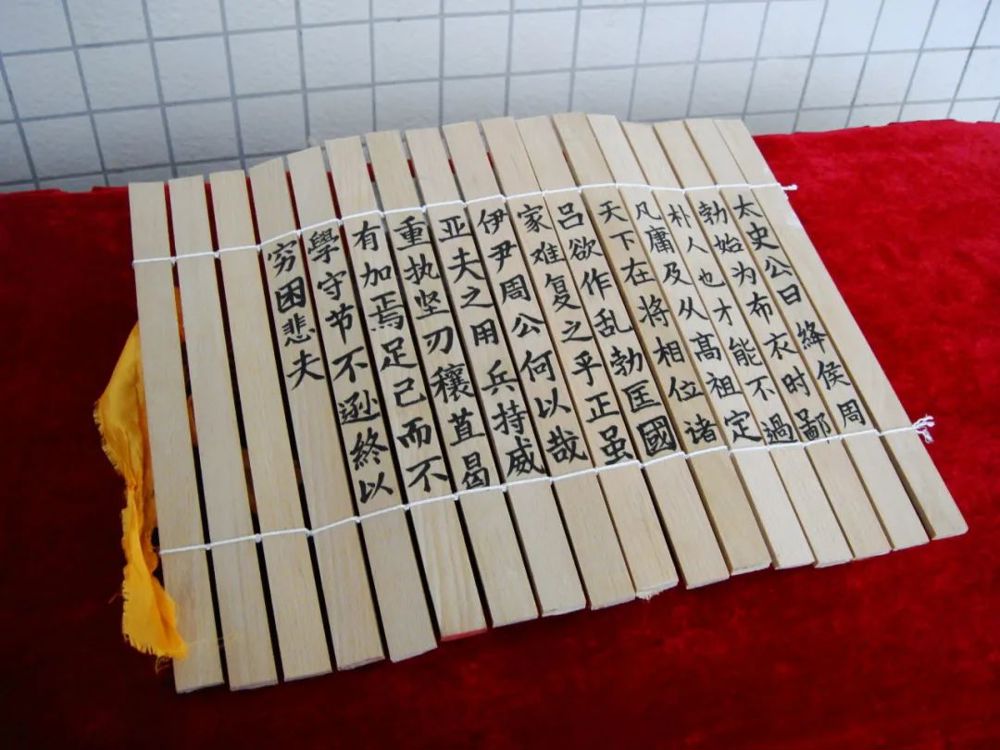 太史公曰絳侯周
勃始为布衣时鄙
朴人也才能不過
凡庸及从高祖定
天下在将相位诸
吕欲作乱勃匡國
家难复之乎正虽
伊尹周公何以哉
亚夫之用兵持威
重执坚刃穰苴曷
有加焉足己而不
學守节不逊終以
穷困悲夫